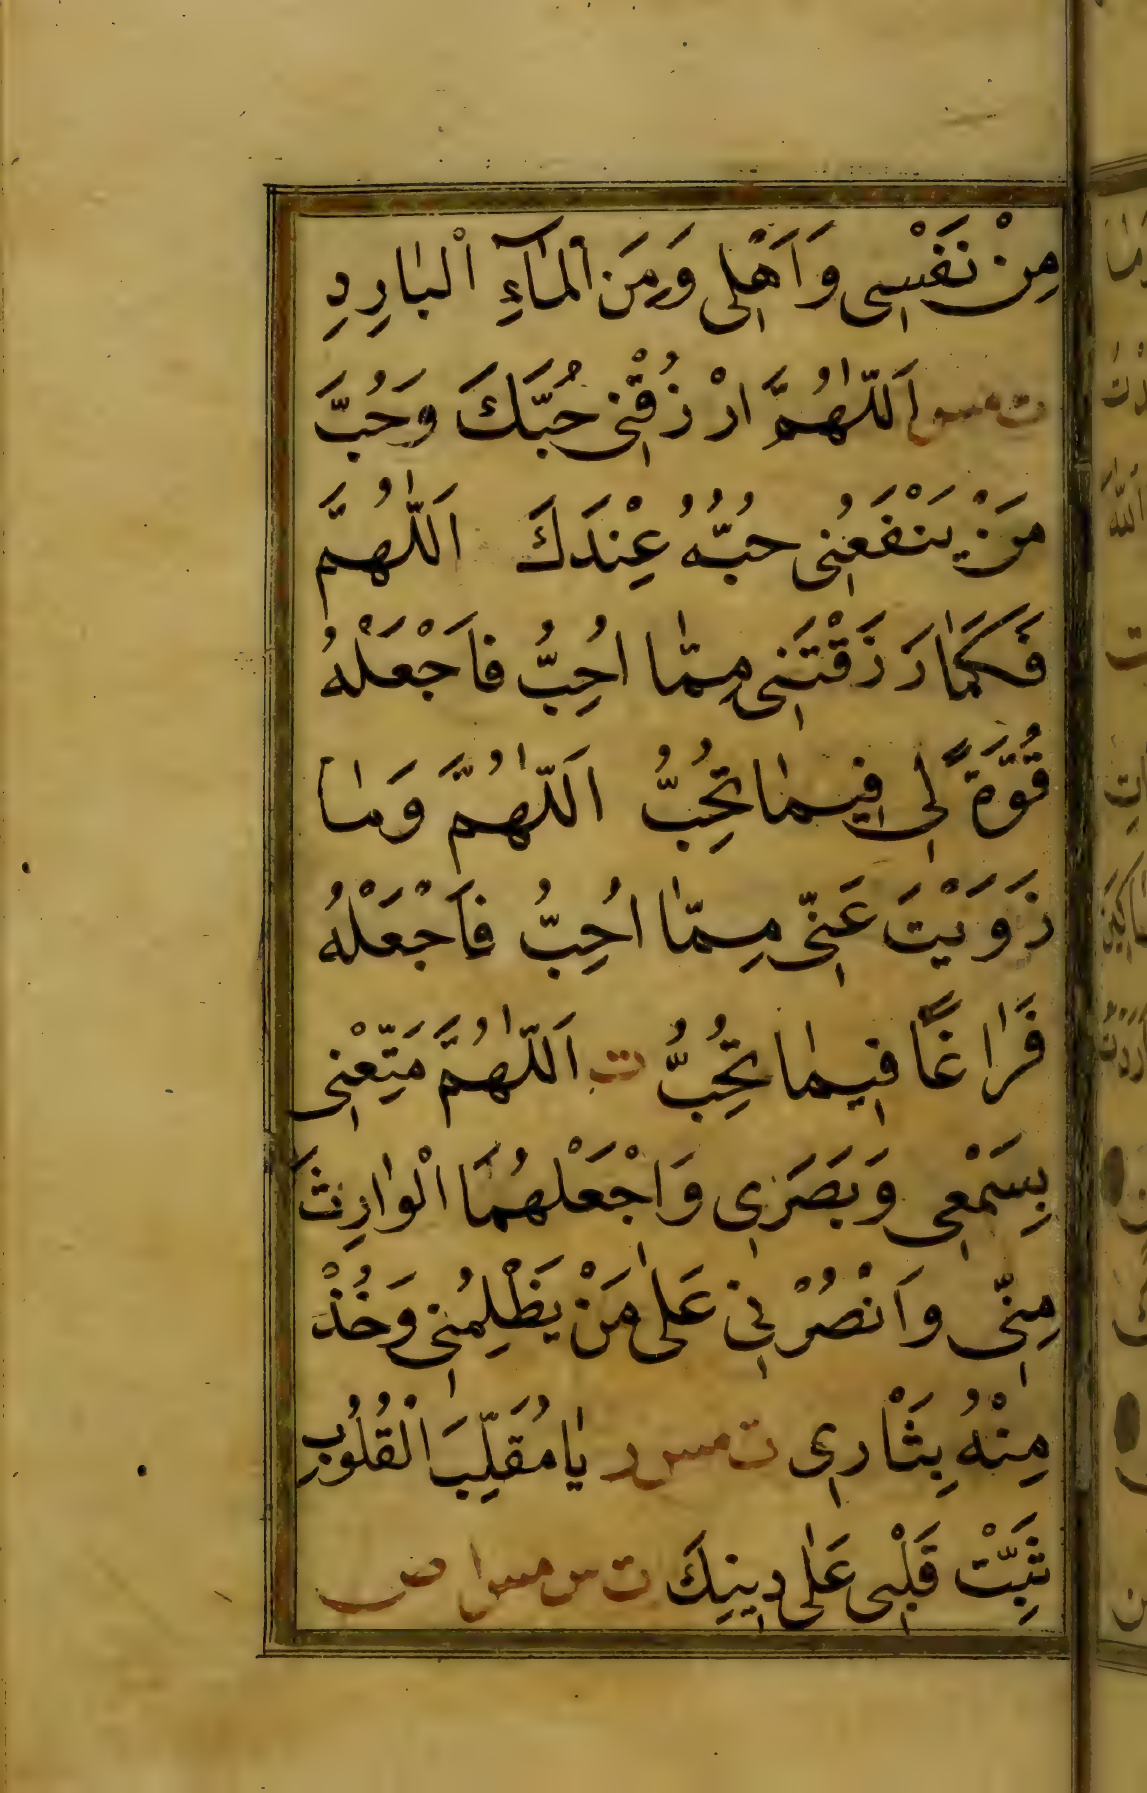 مِنْ نَفْسِى وَاَهْلِى وَمِنَ الْمَآءِ الْبَارِدِ
ت مس اَللّٰهُمَّ ارْزُقْنِى حُبَّكَ وَحُبَّ
مَنْ يَنْفَعُنِى حُبُّهُ عِنْدَكَ اَللّٰهُمَّ
فَكَمَا رَزَقْتَنِى مِمَّا اُحِبُّ فَاجْعَلْهُ
قُوَّةً لِى فِيمَا تُحِبُّ اَللّٰهُمَّ وَمَا
زَوَيْتَ عَنِّى مِمَّا اُحِبُّ فَاجْعَلْهُ
فَرَاغًا فِيمَا تُحِبُّ ت اَللّٰهُمَّ مَتِّعْنِى
بِسَمْعِى وَبَصَرِى وَاجْعَلْهُمَا الْوَارِثَ
مِنِّى وَانْصُرْنِى عَلٰى مَنْ يَظْلِمُنِى وَخُذْ
مِنْهُ بِثَارِى ت مس ر يَا مُقَلِّبَ الْقُلُوبِ
ثَبِّتْ قَلْبِى عَلٰى دِينِكَ ت س مس ا ص